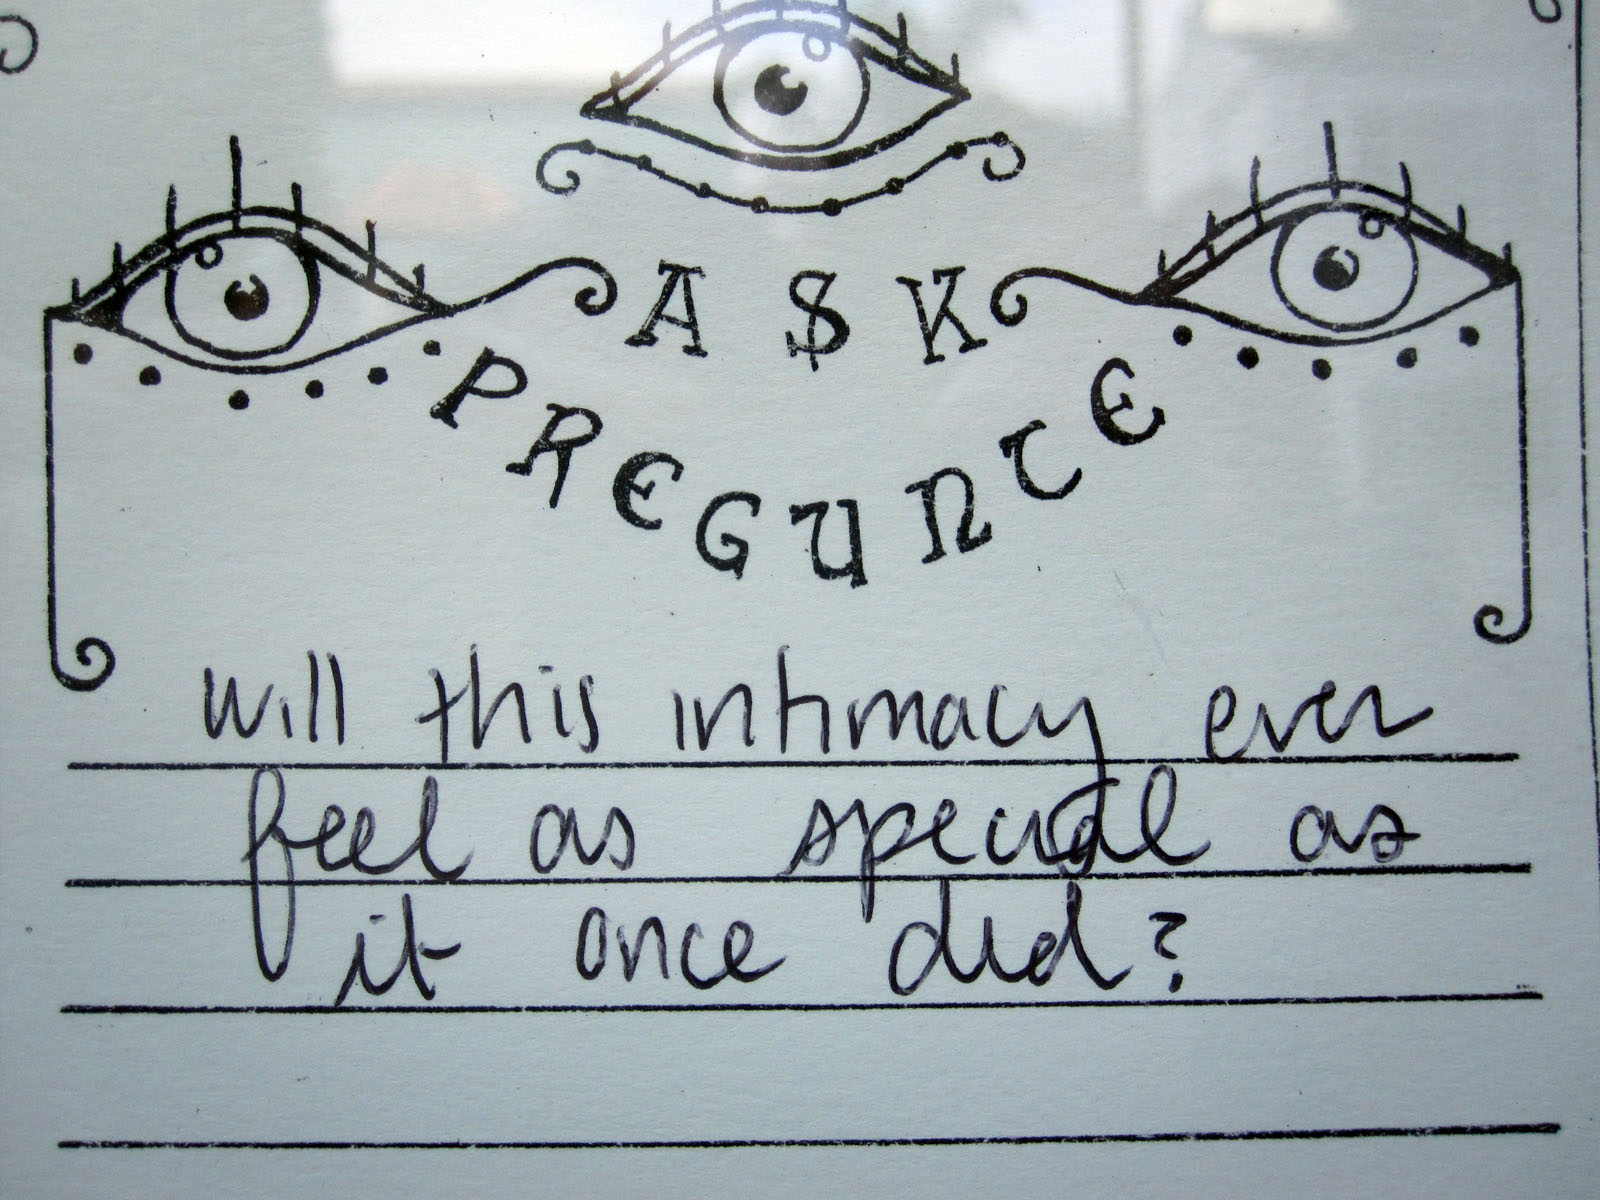 ASK
PREGUNTE
will this intimacy ever
feel as special as
it once did?